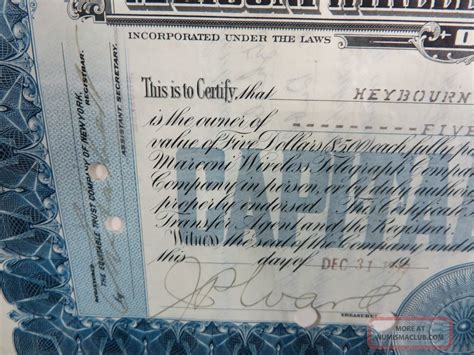 INCORPORATED UNDER THE LAWS O
This is to Certify, that HEYBOURN
is the owner of ----------FIV
value of Five Dollars $5.00 each fully pa
Marconi Wireless Telegraph Compan
Company in person, or by duly author
properly endorsed. This Certificate
Transfer Agent and the Registrar.
Witness the seal of the Company and
this day of DEC 31
CAPITAL
THE EQUITABLE TRUST COMPANY OF NEW YORK,
REGISTRAR.
By
ASSISTANT SECRETARY.
MORE AT
NUMISMACLUB.COM